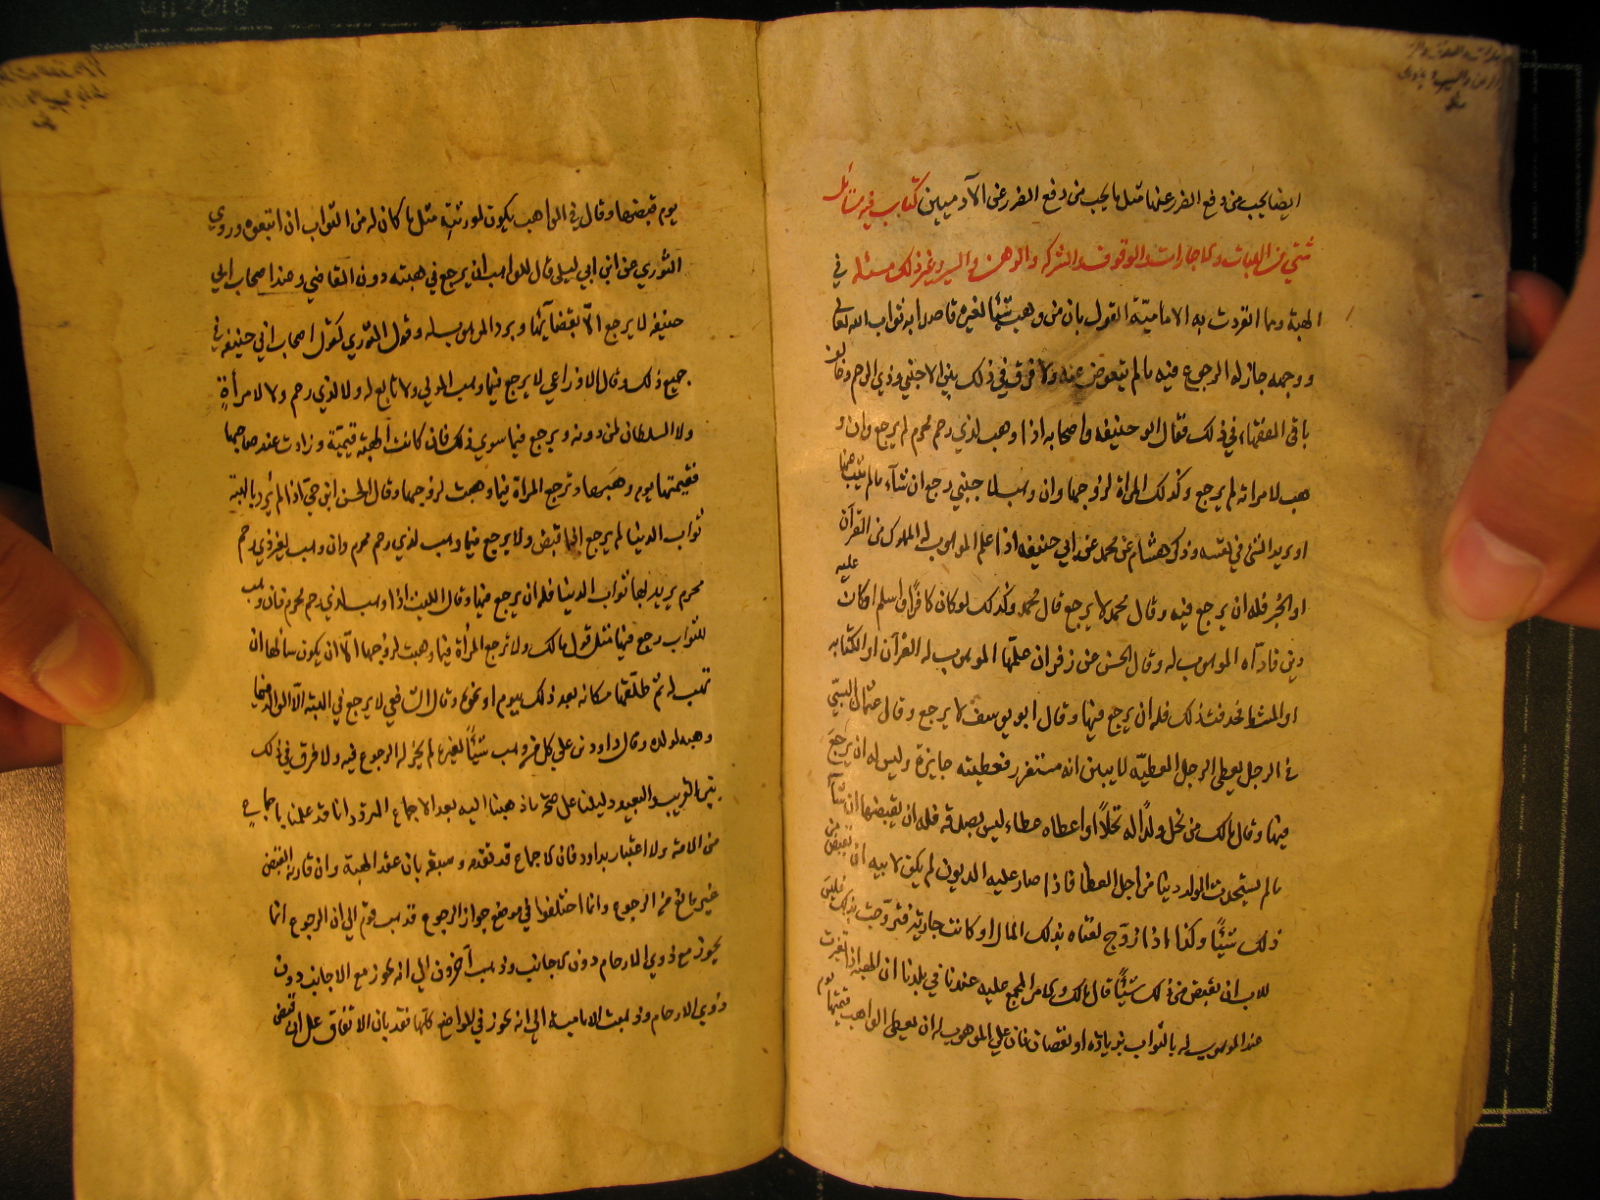 ايضا يجب من دفع الضرر عنها مثل ما يجب من دفع الضرر عن الآدميين كتاب فيه مسائل
شتي من الهبات والاجارات والوقوف والشركة والرهن والسير وغير ذلك مسئله في
الهبة ومما انفردت به الامامية القول بان من وهب شيئا لغيره قاصدا به ثواب الله تعالى
ووجهه جاز له الرجوع فيه مالم يتعوض عنه ولا فرق في ذلك بين الاجنبي وذي الرحم وخالف
باقي الفقهاء في ذلك فقال ابو حنيفه واصحابه اذا وهب لذي رحم محرم لم يرجع وان و
هب لامراته لم يرجع وكذلك المراة لزوجها وان وهب لاجنبي رجع ان شاء مالم يثب منها
او يزيد الشئ في نفسه وذكر هشام عن محمد عن ابي حنيفه اذا علم الموهوب له المملوك من القرآن
او الخبز فله ان يرجع فيه وقال محمد لا يرجع قال محمد وكذلك لو كان كافرا فاسلم او كان عليه
دين فادّاه الموهوب له وقال الحسن عن زفر ان علمها الموهوب له القرآن او الكتابه
او المشط فحذقت ذلك فله ان يرجع فيها وقال ابو يوسف لا يرجع وقال عثمان البتّي
في الرجل يعطي الرجل العطيّه لا يبين انه مستغزر فعطيته جايزة وليس له ان يرجع
فيها وقال مالك من نحل ولدا له نحلا او اعطاه عطاء ليس بصدقة فله ان يقبضها ان شاء
مالم يستحدث الولد دينا من اجل العطا فاذا صار عليه الديون لم يكن لابيه ان يقبض من
ذلك شيئا وكذا اذا زوّج لغناه بذلك المال او كانت جارية فتزوّجت بذلك فليس
للاب ان يقبض من ذلك شيئا قال مالك والامر المجمع عليه عندنا في بلدنا ان الهبة اذا تغيرت
عند الموهوب له بالثواب بزيادة او نقصان فان علي الموهوب له ان يعطي الواهب قيمتها يوم
يوم قبضها وقال في الواهب يكون لورثته مثل ما كان له من الثواب ان اتبعوه وروي
الثوري عن ابن ابي ليلى قال للواهب ان يرجع في هبته دون القاضي وعند اصحاب ابي
حنيفه لا يرجع الّا بقضاء يثها ويرد الموهوب له وقول الثوري كقول اصحاب ابي حنيفه في
جميع ذلك وقال الاوزاعي لا يرجع فيما وهب لمولي ولا تابع له ولا لذي رحم ولا لامرأة
ولا السلطان لمن دونه ويرجع فيما سوي ذلك فان كانت الهبة قيميّة وزادت عند صاحبها
فقيمتها يوم وهبها وترجع المراة فيما وهبت لزوجها وقال الحسن ابن حيّ اذا لم يُرد بالهبة
ثواب الدنيا لم يرجع اذا قبض ولا يرجع فيما وهب لذي رحم محرم وان وهب لغير ذي رحم
محرم يريد بها ثواب الدنيا فله ان يرجع فيها وقال الليث اذا وهب لذي رحم محرم فان وهب
للثواب رجع فيها مثل قول مالك ولا ترجع المرأة فيما وهبت لزوجها الّا ان يكون سألها ان
تهب له ثم طلّقها مكانه بعد ذلك بيوم او نحوه وقال الشافعي لا يرجع في الهبة الّا الوالد فيما
وهبه لولده وقال داود بن علي كل من وهب شيئا لغيره لم يجز له الرجوع فيه ولا فرق في ذلك
بين القريب والبعيد دليلنا على صحّة ما ذهبنا اليه بعد الاجماع المتردد انا قد علمنا باجماع
من الامة ولا اعتبار بداود فان الاجماع قد تقدمه وسبقه بان عقد الهبة وان قارنه القبض
غير مانع من الرجوع وانما اختلفوا في موضع جواز الرجوع فذهب قوم الي ان الرجوع انما
يجوز مع ذوي الارحام دون الاجانب وذهب آخرون الي انه يجوز مع الاجانب دون
ذوي الارحام وذهبت الامامية الي انه يجوز في المواضع كلّها فقد بان الاتفاق على ان قبض